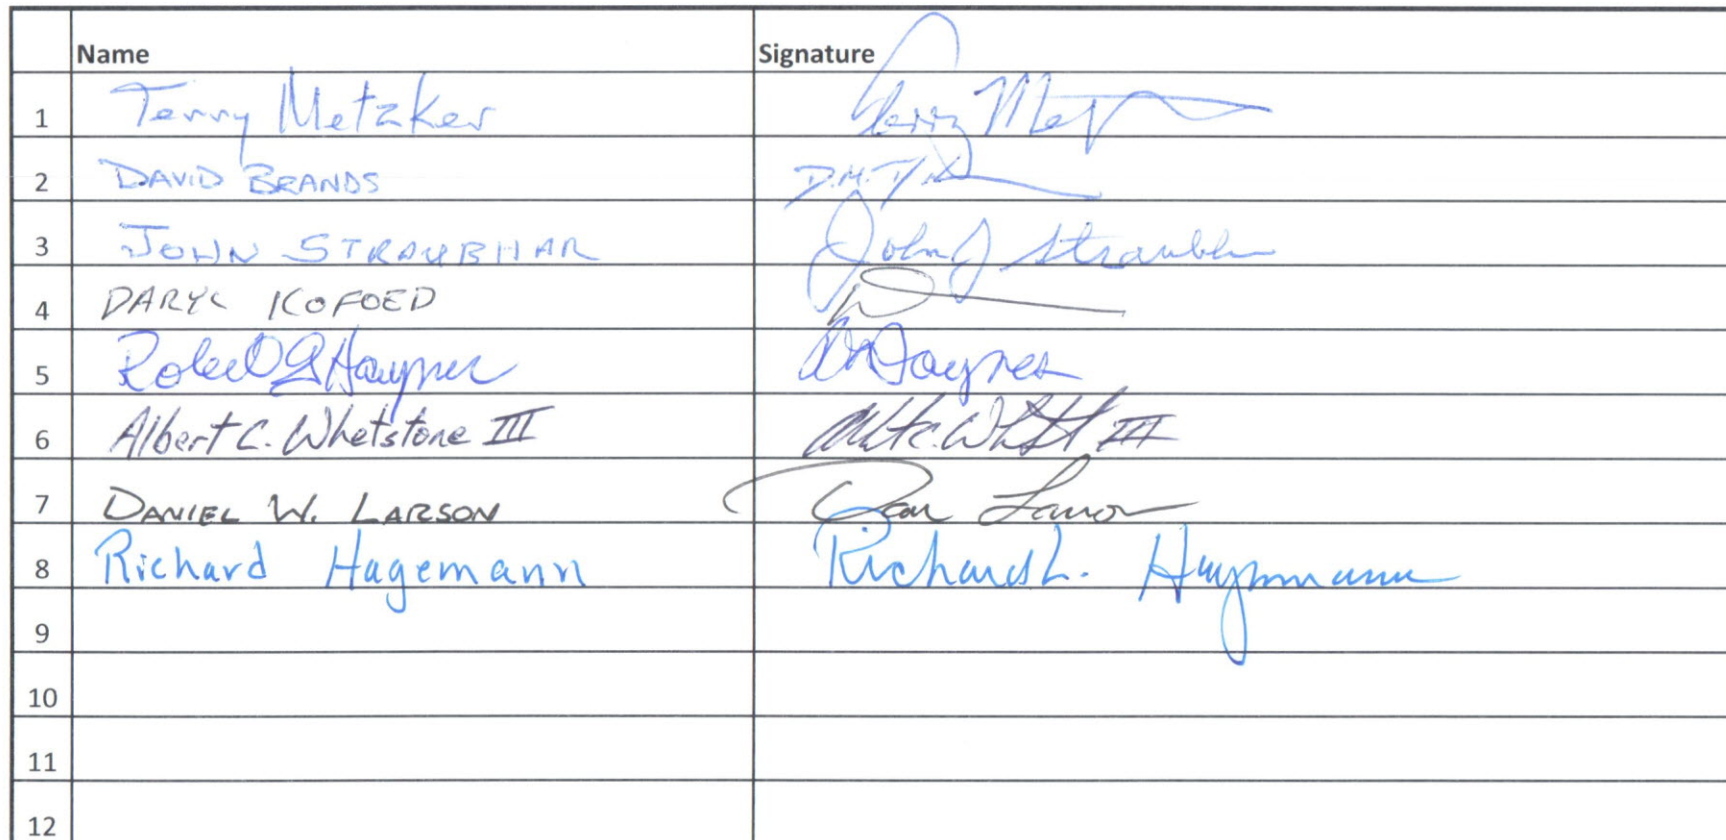 Name Signature
1 Terry Metzker Terry Met
2 DAVID BRANDS D.M.
3 JOHN STRAUBHAR John J Straubhar
4 DARYL KOFOED
5 Robert G Hayner Hayner
6 Albert C. Whetstone III C. III
7 DANIEL W. LARSON Dan Larson
8 Richard Hagemann Richard L. Hagemann
9
10
11
12